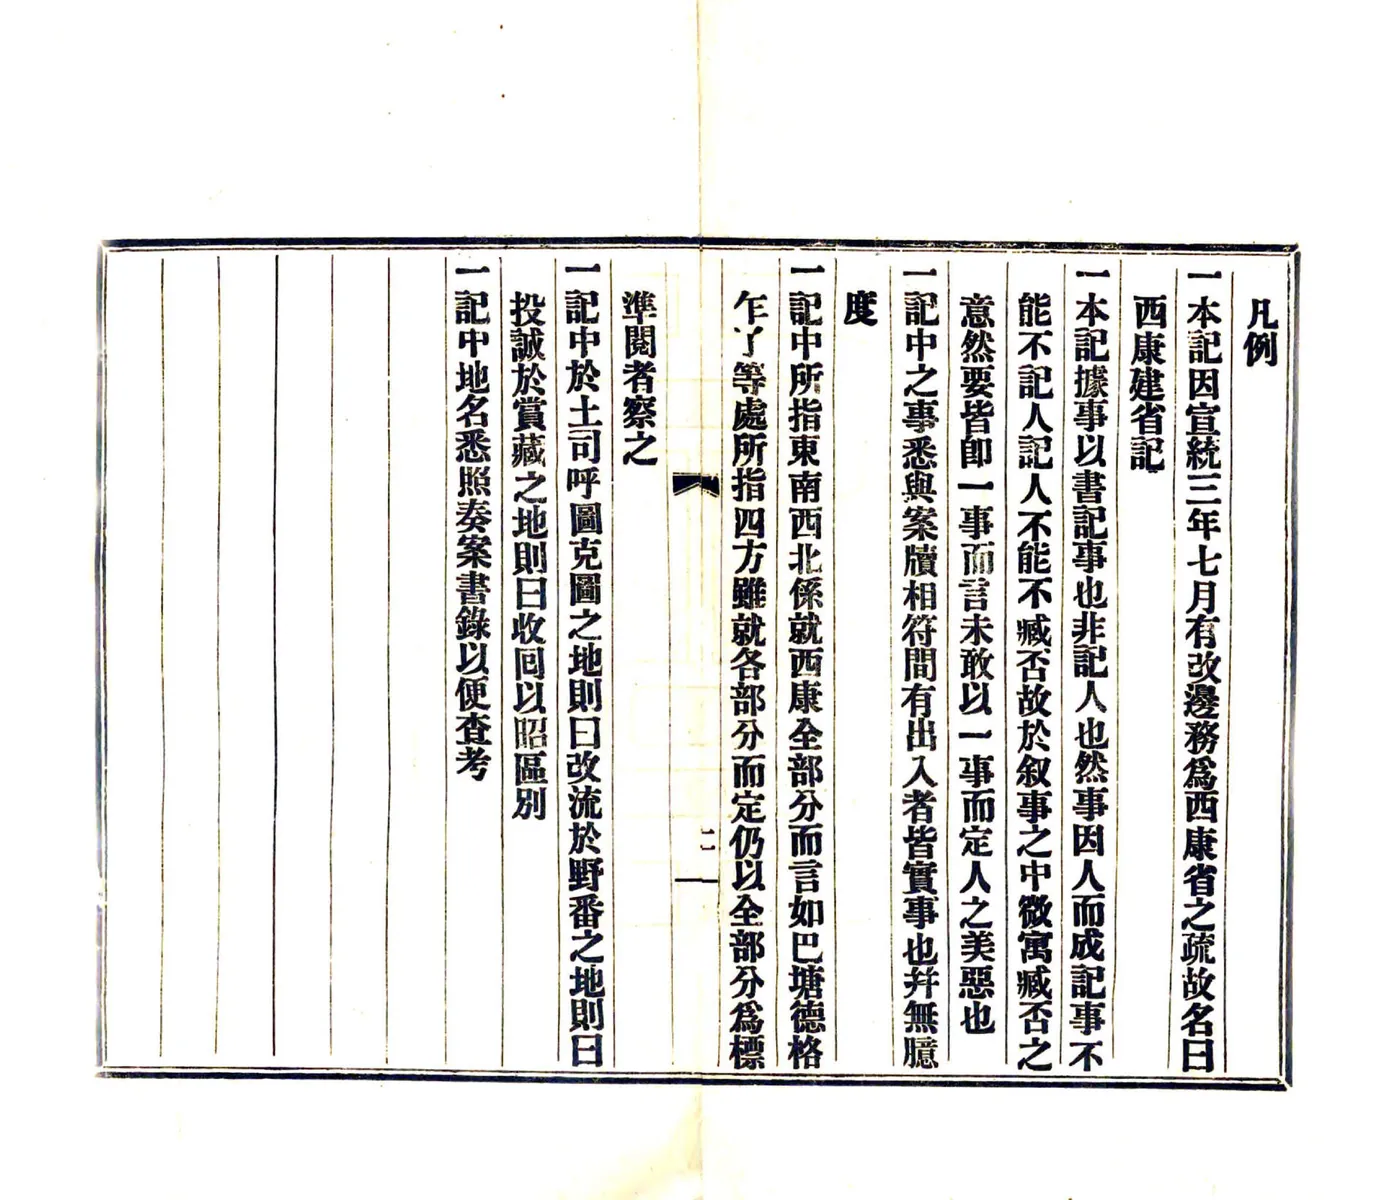 凡例
一本記因宣統三年七月有改邊務爲西康省之疏故名曰
西康建省記
一本記據事以書記事也非記人也然事因人而成記事不
能不記人記人不能不臧否故於叙事之中微寓臧否之
意然要皆卽一事而言未敢以一事而定人之美惡也
一記中之事悉與案牘相符間有出入者皆實事也幷無臆
度
一記中所指東南西北係就西康全部分而言如巴塘德格
乍了等處所指四方雖就各部分而定仍以全部分爲標
二
準閱者察之
一記中於土司呼圖克圖之地則曰改流於野番之地則曰
投誠於賞藏之地則曰收回以昭區別
一記中地名悉照奏案書錄以便查考